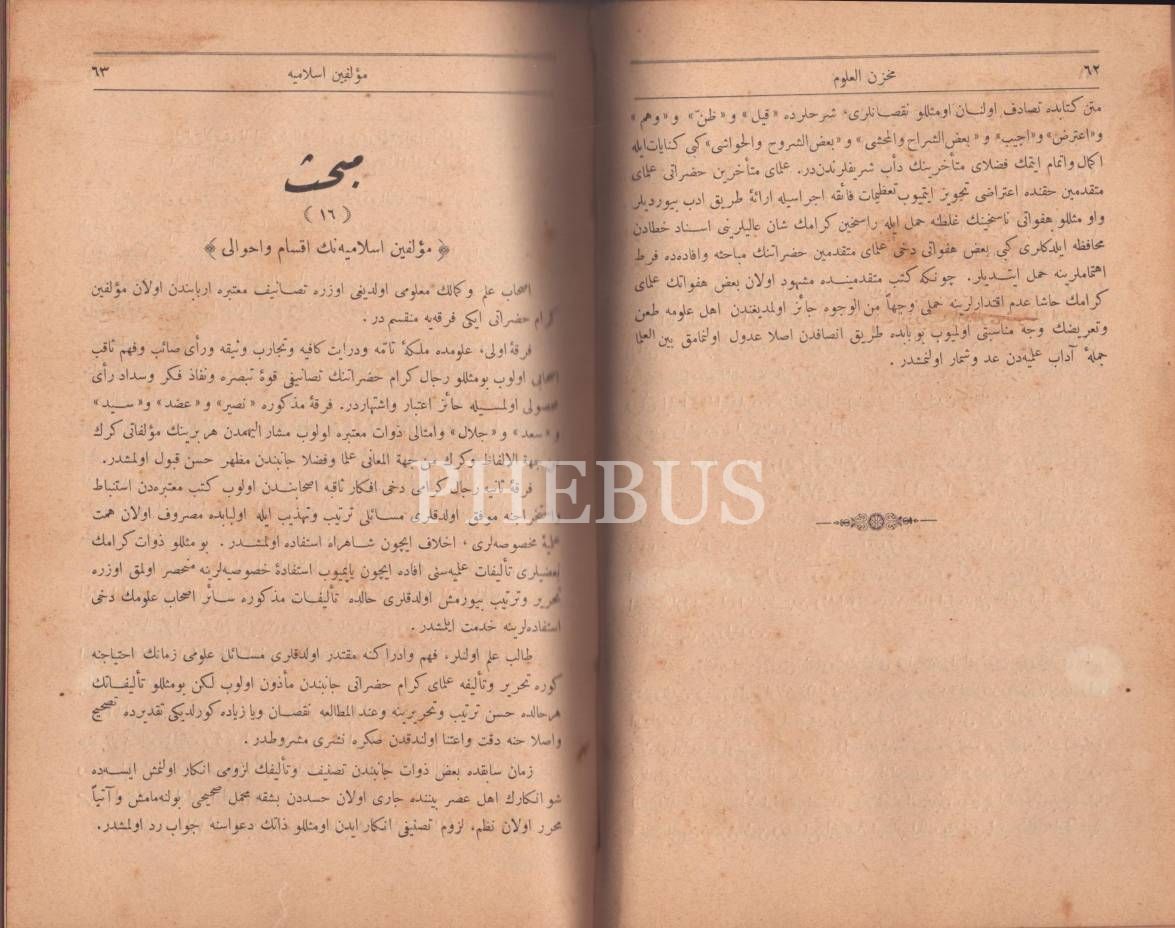 ٦٢
مخزن العلوم
متن كتابده تصادف اولنان اومثللو نقصانلری، شرحلرده «قیل» و «ظنّ» و «وهم»
و «اعترض» و «اجیب» و «بعض الشراح والمحشی» و «بعض الشروح والحواشی» كبی كنایات ایله
اكمال واتمام ایتمك فضلای متأخرینك دأب شریفلرندندر. علمای متأخرین حضراتی علمای
متقدمین حقنده اعتراضی تجویز ایتمیوب تعظیمات فائقه اجراسیله ارائهٔ طریق ادب بیوردیلر
واو مثللو هفواتی ناسخینك غلطنه حمل ایله راسخین كرامك شان عالیلرینی اسناد خطادن
محافظه ایلدكلری كبی بعض هفواتی دخی علمای متقدمین حضراتنك مباحثه وافاده‌ده فرط
اهتماملرینه حمل ایتدیلر. چونكه كتب متقدمینده مشهود اولان بعض هفواتك علمای
كرامك حاشا عدم اقتدارلرینه حملی وجهاً من الوجوه جائز اولمدیغندن اهل علومه طعن
وتعریضك وجه مناسبتی اولمیوب بو بابده طریق انصافدن اصلا عدول اولنمامق بین العلما
جملهٔ آداب علمیه‌دن عد وشمار اولنمشدر.
مؤلفین اسلامیه
٦٣
مبحث
(١٦)
﴿ مؤلفین اسلامیه‌نك اقسام واحوالی ﴾
اصحاب علم وكمالك معلومی اولدیغی اوزره تصانیف معتبره اربابندن اولان مؤلفین
كرام حضراتی ایكی فرقه‌یه منقسم در.
فرقهٔ اولی، علومده ملكهٔ تامه ودرایت كافیه وتجارب وثیقه ورأی صائب وفهم ثاقب
اصحابی اولوب بومثللو رجال كرام حضراتنك تصانیفی قوهٔ تبصره ونفاذ فكر وسداد رأی
محصولی اولمسیله حائز اعتبار واشتهاردر. فرقهٔ مذكوره «نصیر» و «عضد» و «سید»
و «سعد» و «جلال» وامثالی ذوات معتبره اولوب مشار الیهمدن هر برینك مؤلفاتی كرك
جهة الالفاظ وكرك من جهة المعانی علما وفضلا جانبندن مظهر حسن قبول اولمشدر.
فرقهٔ ثانیه رجال كرامی دخی افكار ثاقبه اصحابندن اولوب كتب معتبره‌دن استنباط
واستخراجنه موفق اولدقلری مسائلی ترتیب وتهذیب ایله اولبابده مصروف اولان همت
علیهٔ مخصوصه‌لری، اخلاف ایچون شاهراه استفاده اولمشدر. بومثللو ذوات كرامك
بعضیلری تألیفات علمیه‌سنی افاده ایچون یاپمیوب استفادهٔ خصوصیه‌لرینه منحصر اولمق اوزره
تحریر وترتیب بیورمش اولدقلری حالده تألیفات مذكوره سائر اصحاب علومك دخی
استفاده‌لرینه خدمت ایتمشدر.
طالب علم اولنلر، فهم وادراكنه مقتدر اولدقلری مسائل علومی زمانك احتیاجنه
كوره تحریر وتألیفه علمای كرام حضراتی جانبندن مأذون اولوب لكن بومثللو تألیفاتك
هرحالده حسن ترتیب وتحریرینه وعند المطالعه نقصان ویا زیاده كورلدیكی تقدیرده تصحیح
واصلاحنه دقت واعتنا اولندقدن صكره نشری مشروطدر.
زمان سابقده بعض ذوات جانبندن تصنیف وتألیفك لزومی انكار اولنمش ایسه‌ده
شو انكارك اهل عصر بیننده جاری اولان حسددن بشقه محمل صحیحی بولنه‌مامش و آتیاً
محرر اولان نظم، لزوم تصنیفی انكار ایدن اومثللو ذاتك دعواسنه جواب رد اولمشدر.
PHEBUS